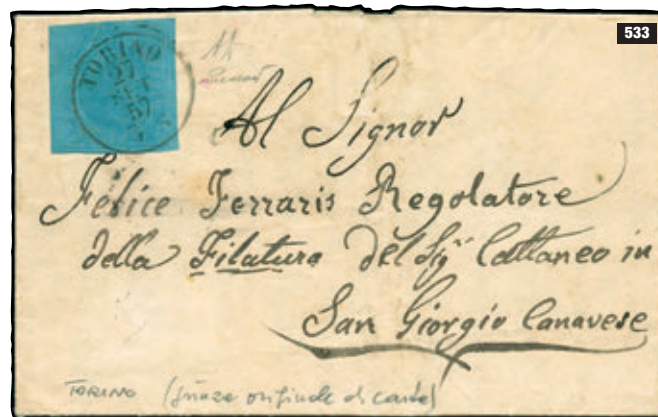 533
TORINO
Al Signor
Felice Ferraris Regolatore
della Filatura del Sig.r Cattaneo in
San Giorgio Canavese
TORINO (originale di